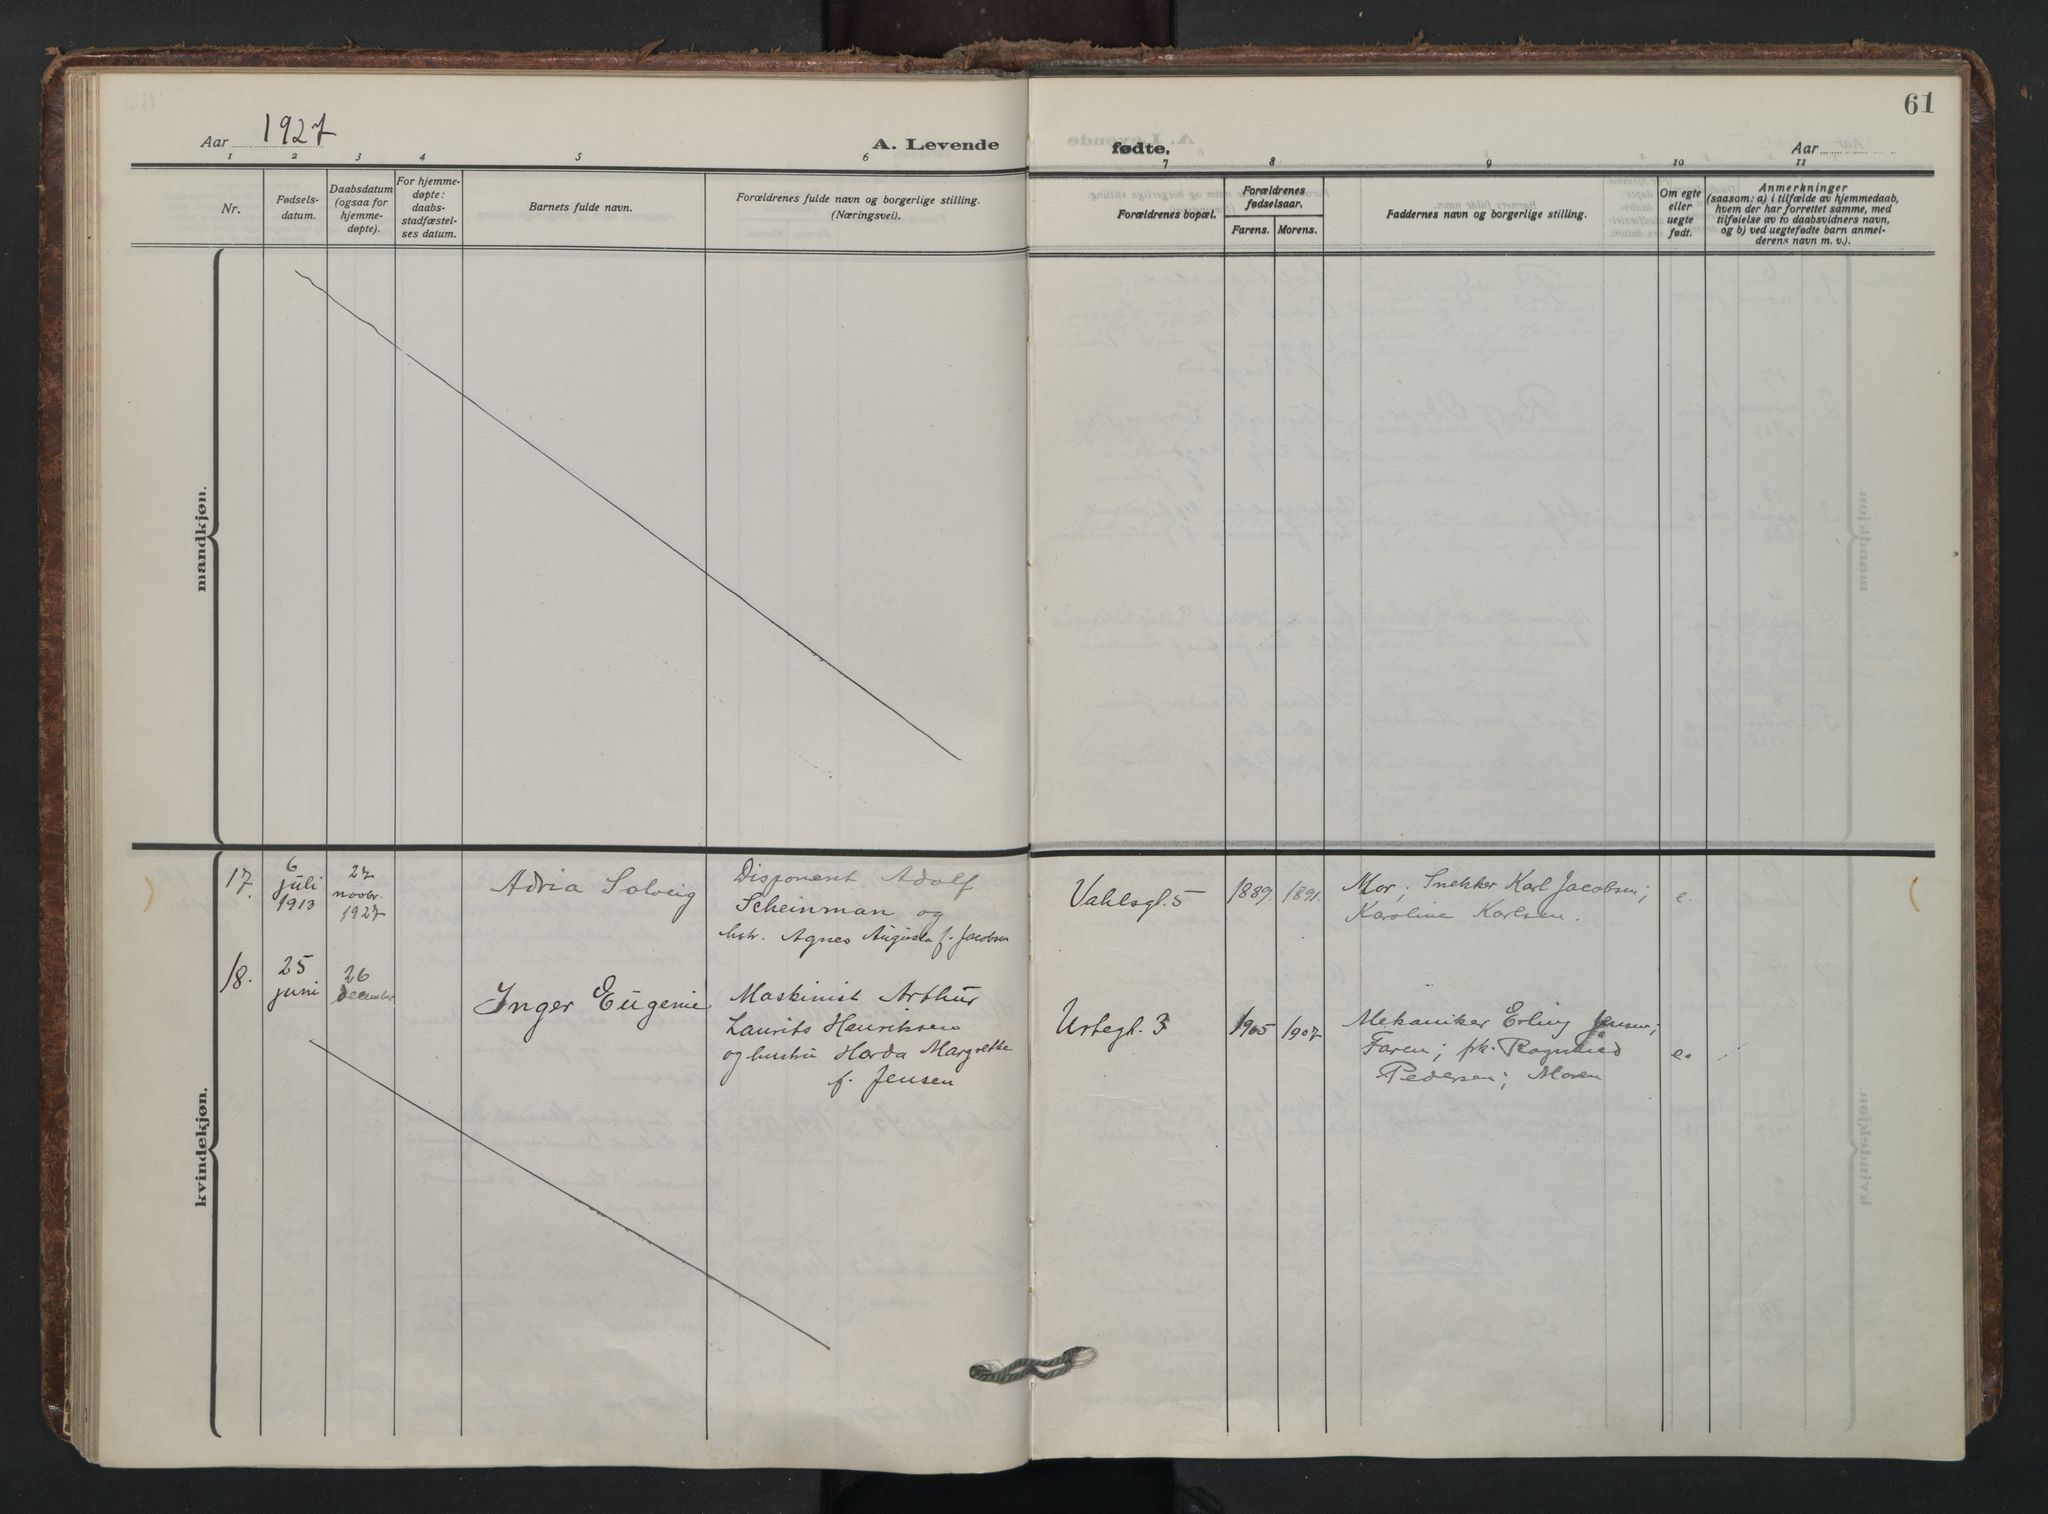 61
Aar 1927
A. Levende fødte.
Aar
1 2 3 4 5 6 7 8 9 10 11
Nr.
Fødsels-
datum.
Daabsdatum
(ogsaa for
hjemme-
døpte).
For hjemme-
døpte:
daabs-
stadfæstel-
ses datum.
Barnets fulde navn.
Forældrenes fulde navn og borgerlige stilling.
(Næringsvei).
Forældrenes bopæl.
Forældrenes
fødselsaar.
Farens. Morens.
Faddernes navn og borgerlige stilling.
Om egte
eller
uegte
født.
Anmerkninger
(saasom: a) i tilfælde av hjemmedaab,
hvem der har forrettet samme, med
tilføielse av to daabsvidners navn,
og b) ved uegtefødte barn anmel-
derens navn m. v.).
mandkjøn.
kvindekjøn.
17.
6
juli
1913
27
novbr.
1927
Adria Solveig
Disponent Adolf
Scheinman og
hstr. Agnes Augusta f. Jacobsen
Vahlsgt. 5
1889.
1891.
Mor; Snekker Karl Jacobsen;
Karoline Karlsen.
e.
18.
25
juni
26
december
Inger Eugenie
Maskinist Arthur
Laurits Henriksen
og hustru Horda Margrethe
f. Jensen
Urtegt. 3
1905
1907
Mekaniker Erling Jensen;
Faren; frk. Ragnhild
Pedersen; Moren
e.